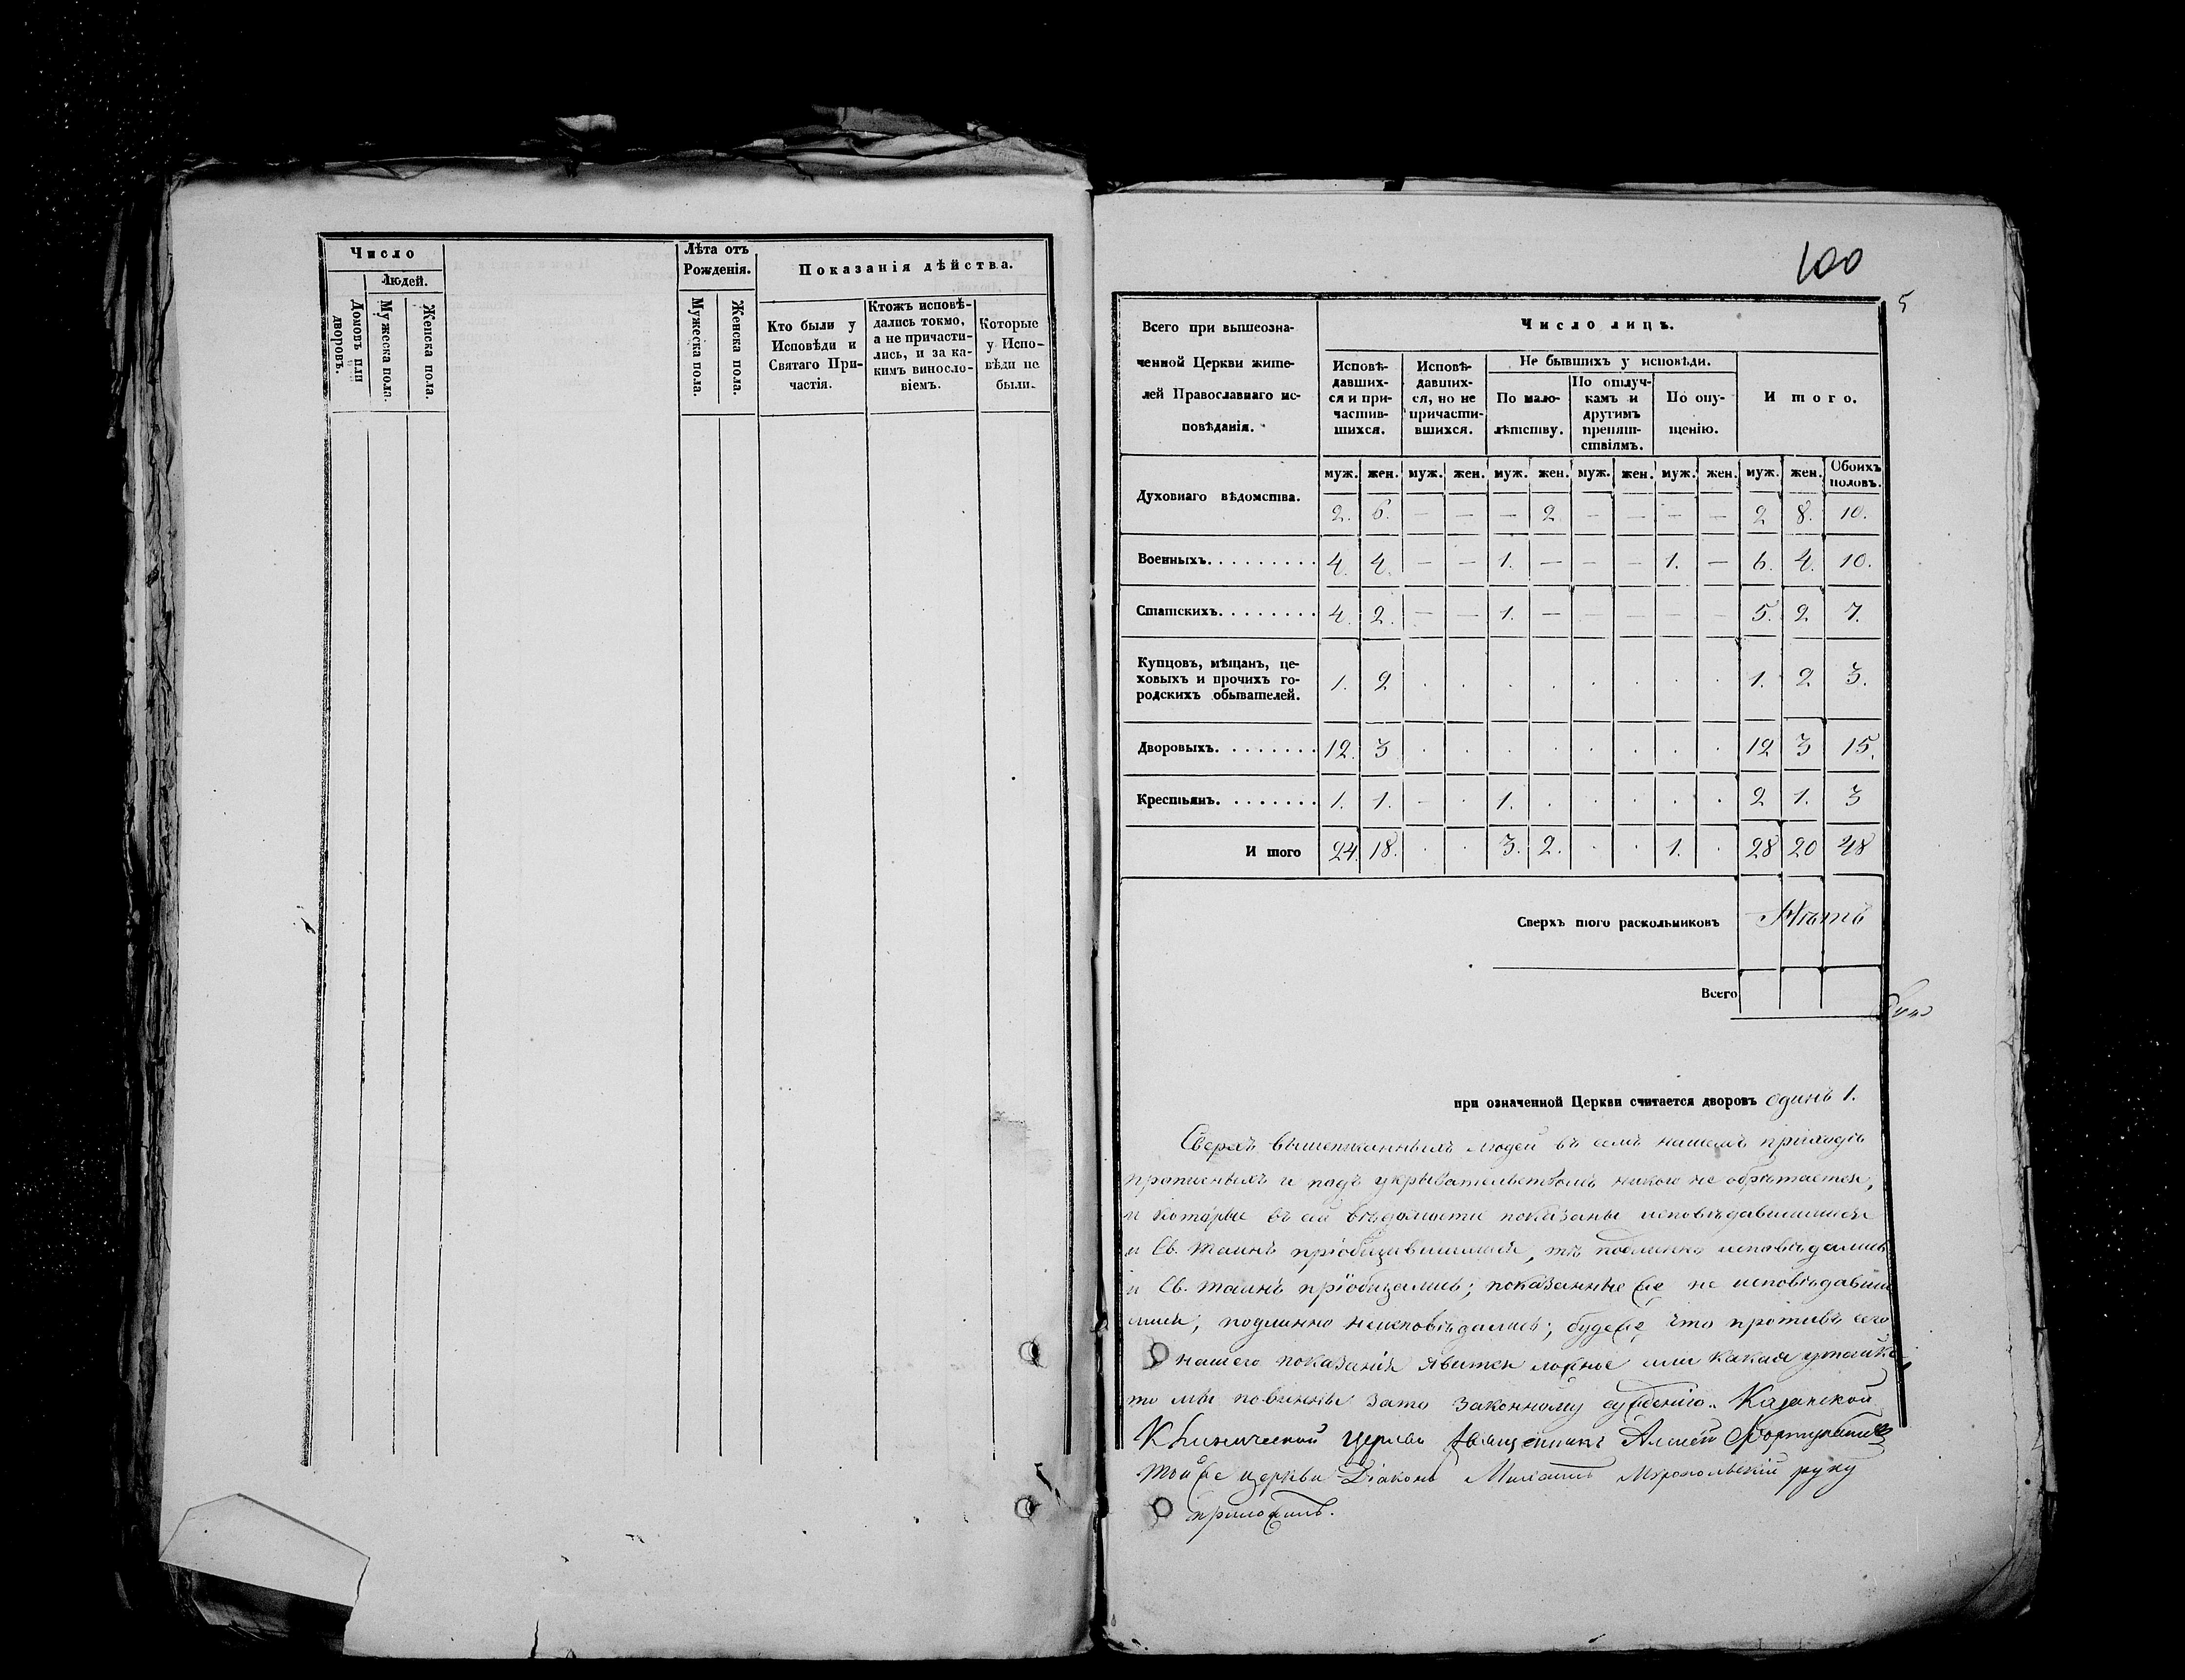 Число
Людей.
Домовъ или дворовъ.
Мужеска пола.
Женска пола.
Лѣта отъ Рожденія.
Мужеска пола.
Женска пола.
Показанія дѣйства.
Кто были у Исповѣди и Святаго Причастія.
Ктожъ исповѣдались токмо, а не причастились, и за какимъ винословіемъ.
Которые у Исповѣди не были.
100
5
Всего при вышеозначенной Церкви жителей Православнаго исповѣданія.
Число лицъ.
Исповѣдавшихся и причастившихся.
Исповѣдавшихся, но не причастившихся.
Не бывшихъ у исповѣди.
По малолѣтству.
По отлучкамъ и другимъ препятствіямъ.
По опущенію.
Итого.
муж. жен. муж. жен. муж. жен. муж. жен. муж. жен. муж. жен. Обоихъ половъ.
Духовнаго вѣдомства. 2. 6. — — — 2 — — — — 2 8. 10.
Военныхъ. 4. 4. — — 1. — — — 1. — 6. 4. 10.
Статскихъ. 4. 2. — — 1. — — — — — 5. 2 7.
Купцовъ, мѣщанъ, цеховыхъ и прочихъ городскихъ обывателей. 1. 2 . . . . . . . . 1. 2 3.
Дворовыхъ. 12. 3 . . . . . . . . 12 3 15.
Крестьянъ. 1. 1. - . 1. . . . . . 2 1. 3
Итого 24. 18. . . 3. 2. . . 1. . 28 20 48
Сверхъ того раскольниковъ Нѣтъ
Всего
при означенной Церкви считается дворовъ одинъ 1.
Сверхъ вышеписанныхъ людей въ семъ нашемъ приходѣ
прописныхъ и подъ укрывательствомъ никого не обрѣтается,
и которые въ сей вѣдомости показаны исповѣдавшимися
и Св. таинъ пріобщившимися, тѣ подлинно исповѣдались
и Св. таинъ пріобщались; показанные же не исповѣдавши
мися, подлинно неисповѣдались; будеже что противъ сего
нашего показанія явится ложное или какая утайка
то мы повинны зато законному сужденію. Казанской
Клинической церкви Священникъ Алексѣй Фортунатовъ
тойже церкви Діаконъ Михаилъ Миропольскій руку
приложилъ.